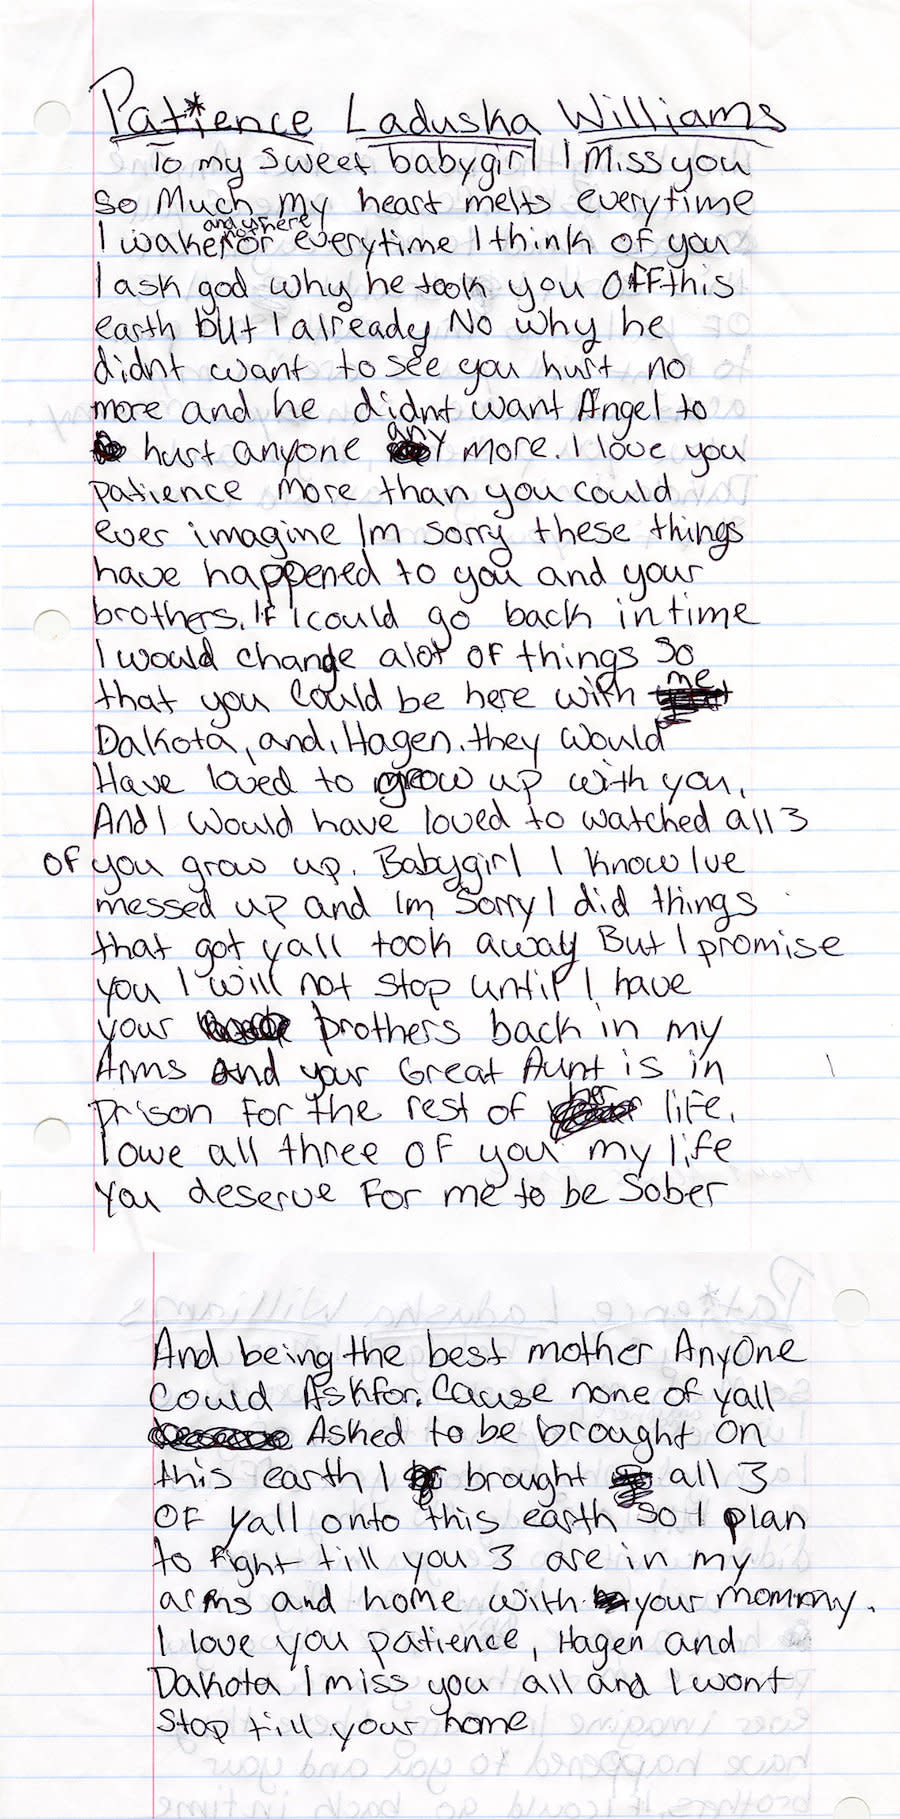 Patience Laduska Williams
To my sweet babygirl I Miss you
So Much my heart melts everytime
and yhere
I wake not or everytime I think of you
I ask god why he took you OFF this
earth but I already No why he
didnt want to see you hurt no
more and he didnt want Angel to
hurt anyone any more. I love you
patience more than you could
ever imagine Im sorry these things
have happened to you and your
brothers. If I could go back in time
I would change alot of things so
that you could be here with me
Dakota, and, Hagen. they would
Have loved to grow up with you.
And I would have loved to watched all 3
of you grow up. Babygirl I know Ive
messed up and Im sorry I did things
that got yall took away But I promise
you I will not stop until I have
your brothers back in my
Arms And your Great Aunt is in
prison for the rest of her life.
I owe all three of you my life
You deserve For me to be Sober
And being the best mother AnyOne
Could Ask for. Cause none of yall
Asked to be brought on
this earth I brought all 3
OF yall onto this earth so I plan
to fight till you 3 are in my
arms and home with your mommy.
I love you patience, Hagen and
Dakota I miss you all and I wont
Stop till your home